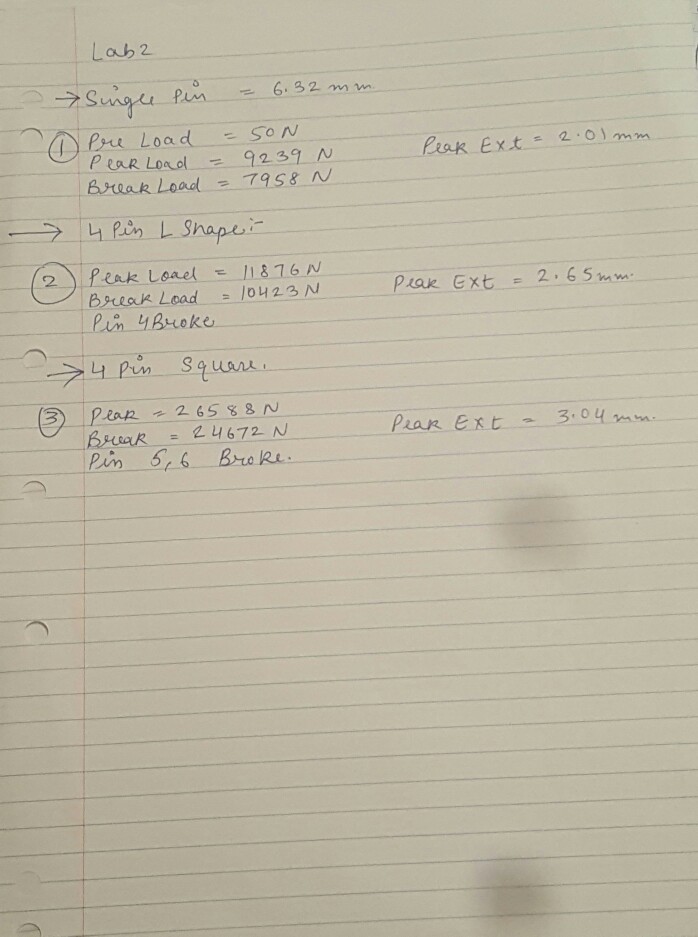 Lab 2
→ Single Pin = 6.32 mm
① Pre Load = 50 N
Peak Load = 9239 N Peak Ext = 2.01 mm
Break Load = 7958 N
→ 4 Pin L Shape:-
② Peak Load = 11876 N Peak Ext = 2.65 mm.
Break Load = 10423 N
Pin 4 Broke
→ 4 Pin Square.
③ Peak = 26588 N Peak Ext = 3.04 mm.
Break = 24672 N
Pin 5,6 Broke.